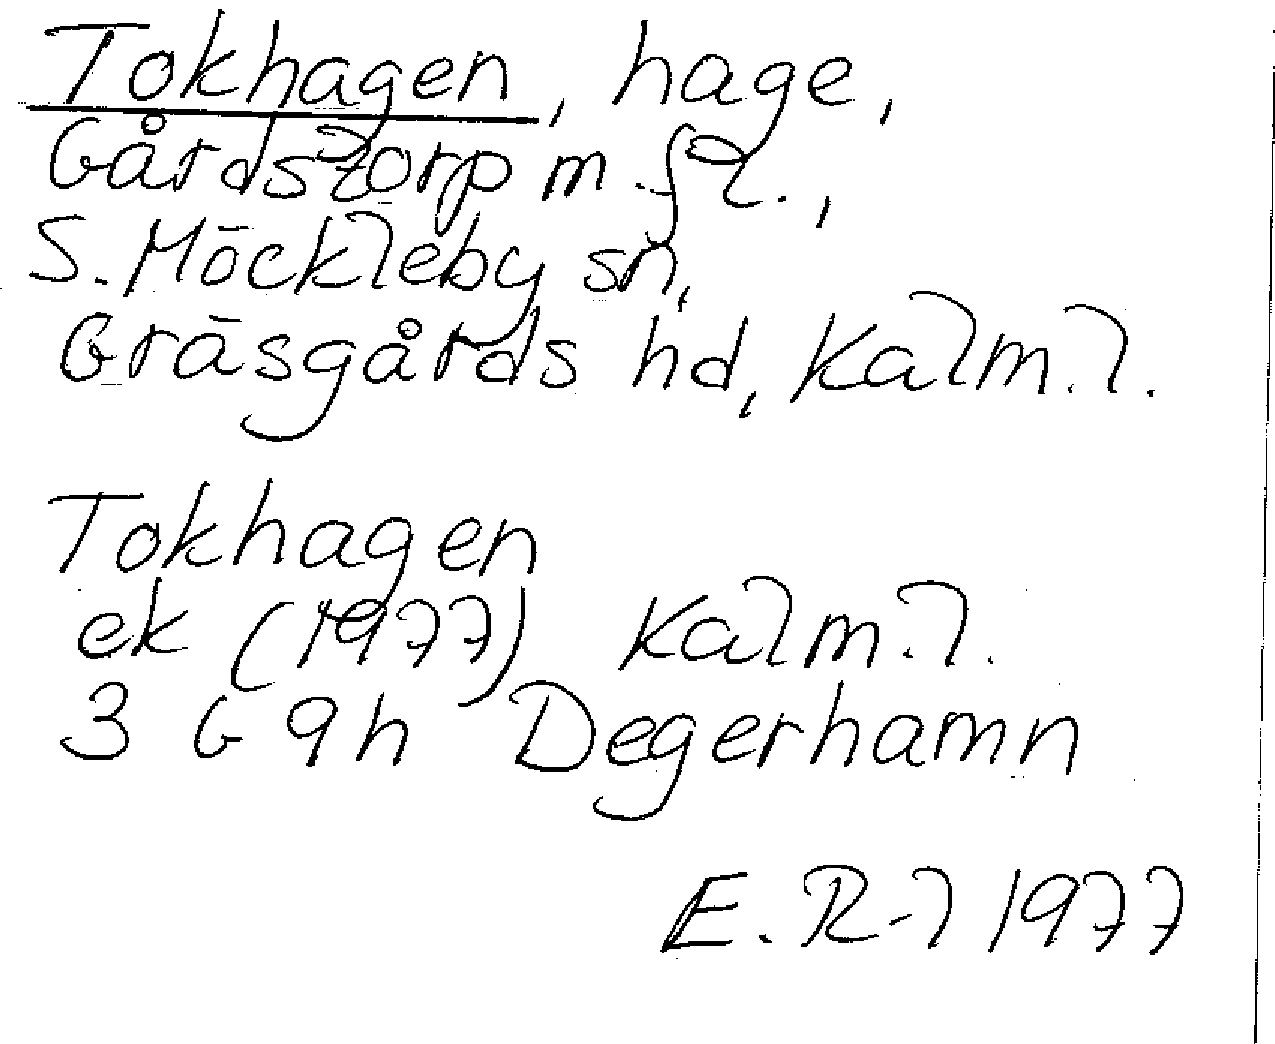 Tokhagen, hage,
Gårdstorp m.fl.,
S. Möckleby sn,
Gräsgårds hd, Kalm.l.
Tokhagen
ek (1977) Kalm.l.
3 G 9h Degerhamn
E. R-l 1977